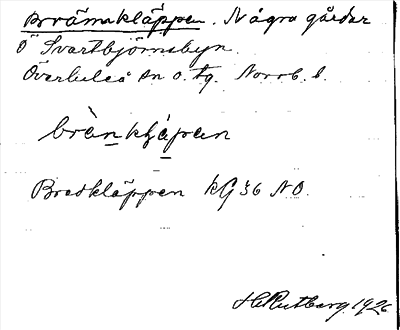 Brämakläppen. Några gårdar
Ö Svartbjörnsbyn.
Överluleå sn o. tg. Norrb. l.
Bredkläppen kG 36 NO.
H. Rutberg. 1926